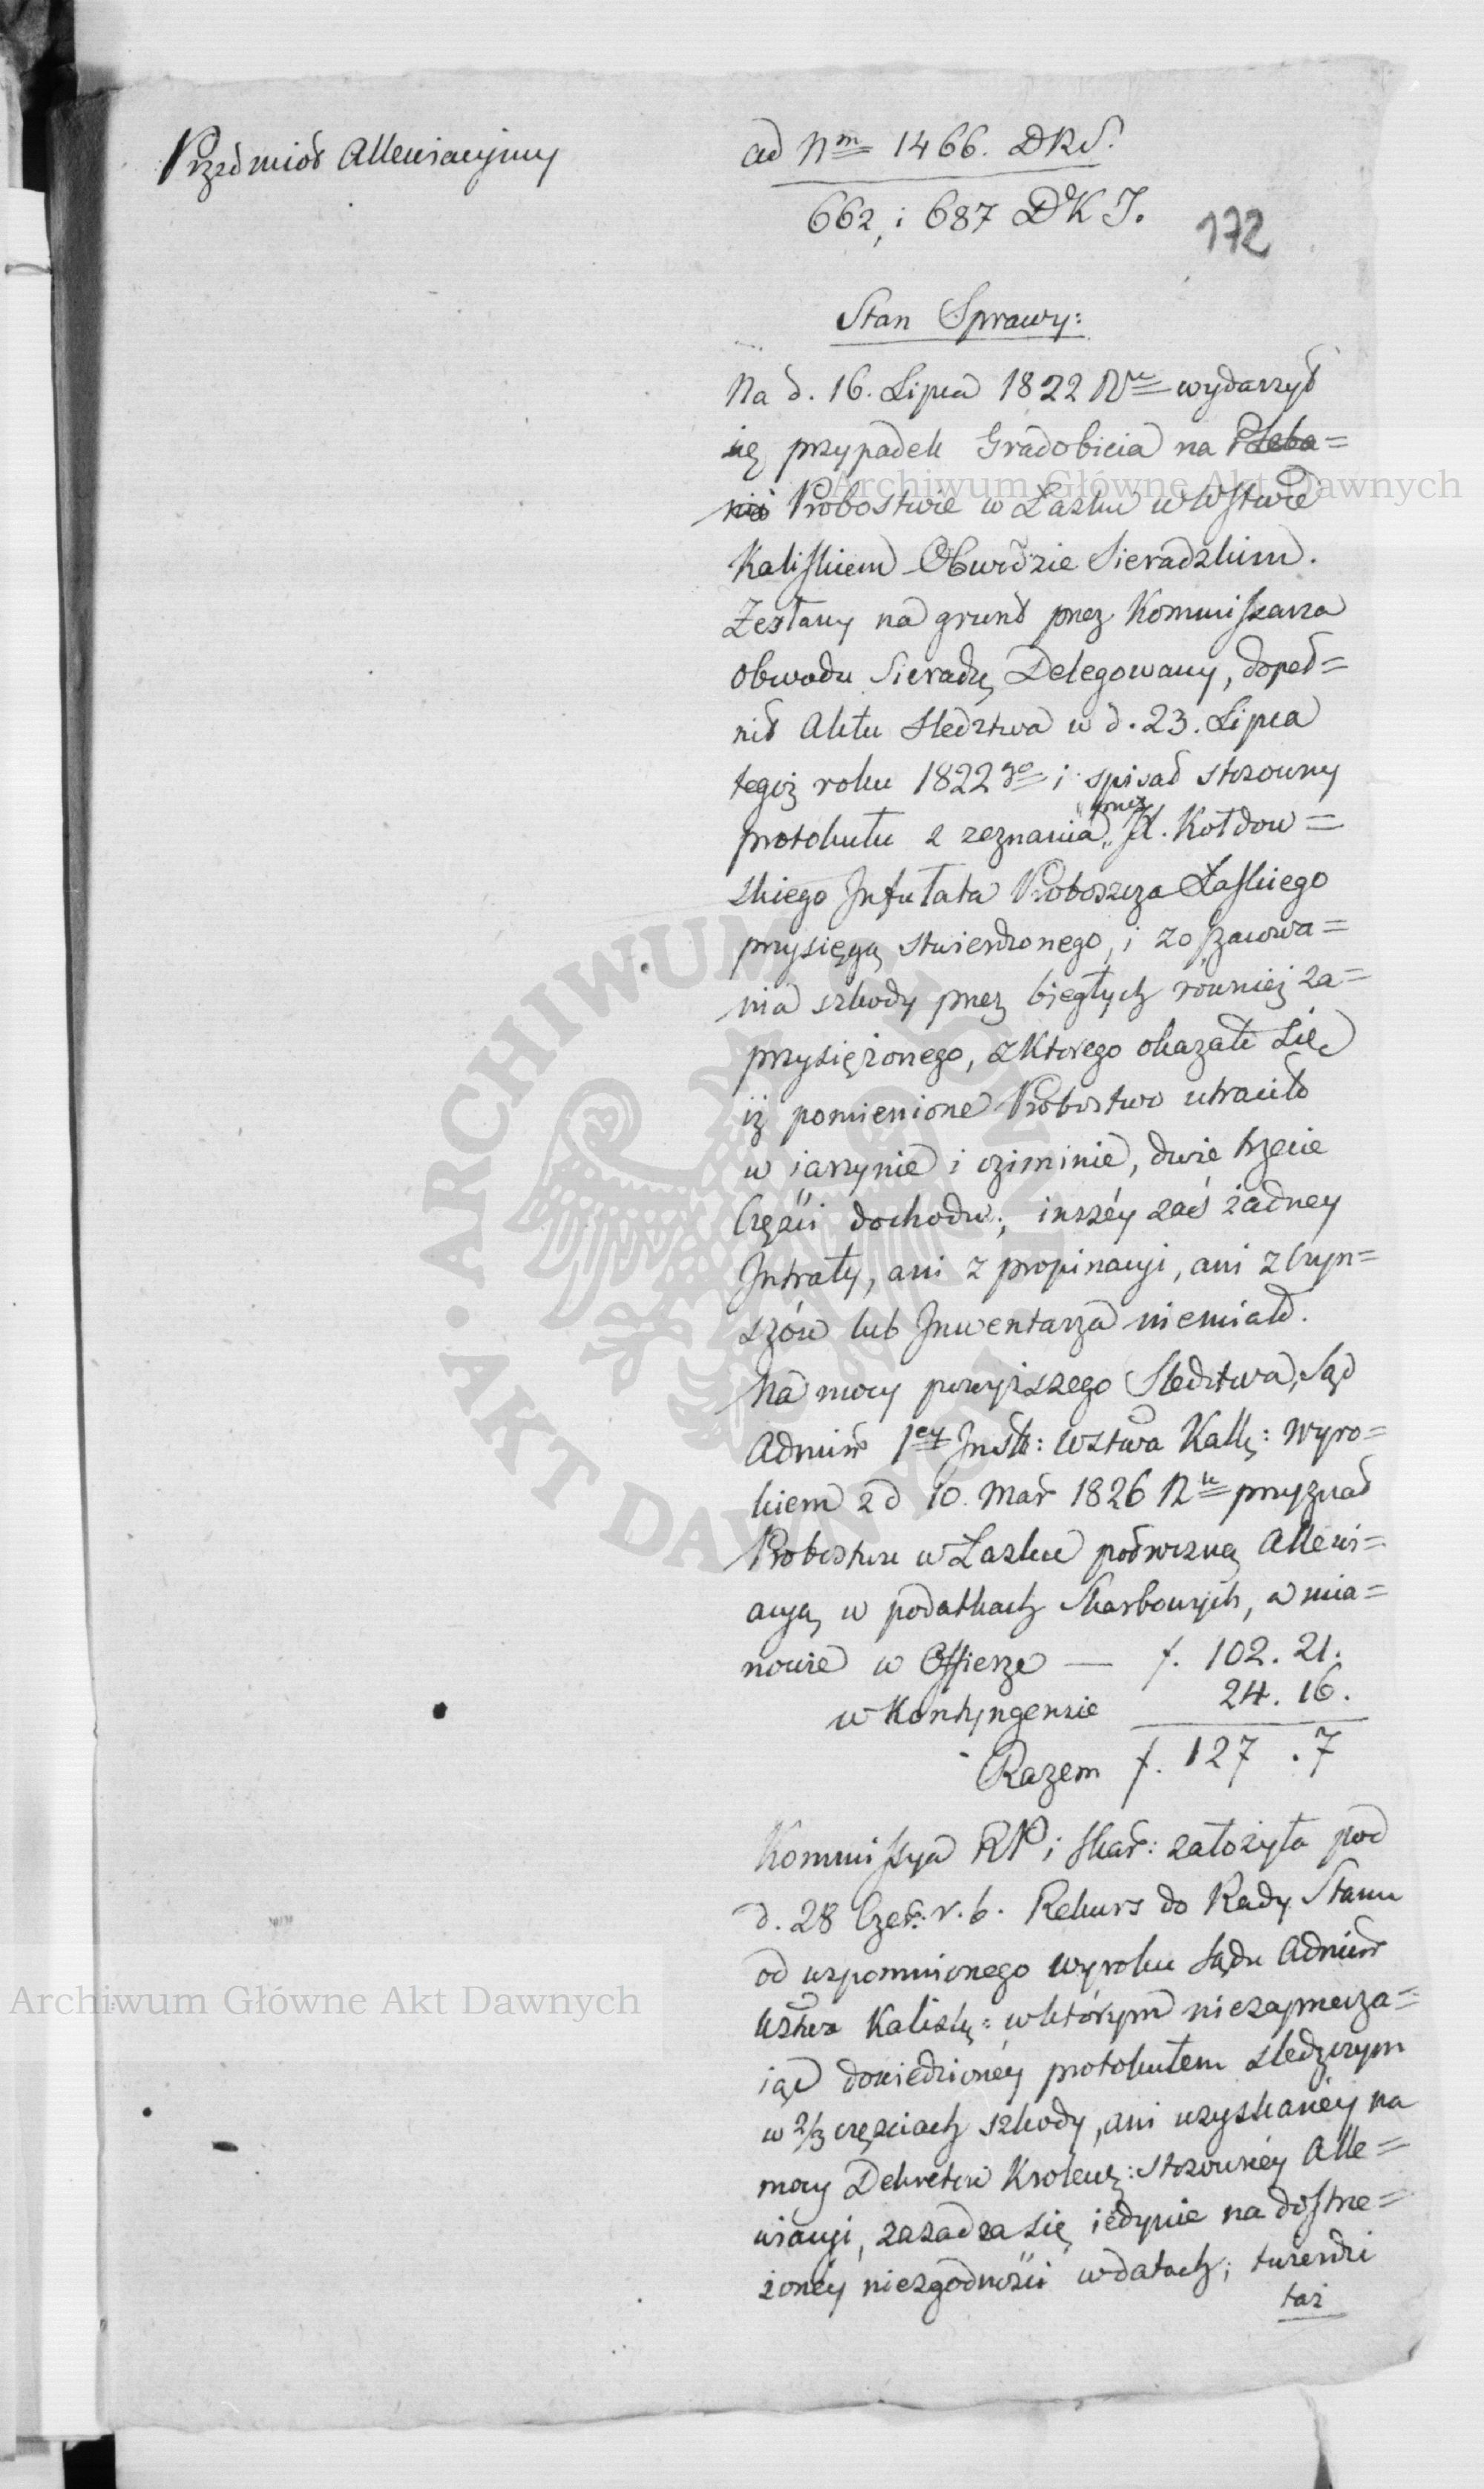 Przedmiot Allewiacyjny
ad Nm 1466. DRS.
662, i 687 DKJ.
172
Stan Sprawy:
Na d. 16. Lipca 1822 Ru wydarzył
się przypadek Gradobicia na Pleba=
nii Probostwie w Łasku w Wstwie
Kaliskiem Obwodzie Sieradzkim.
Zesłany na grunt przez Kommissarza
Obwodu Sieradz, Delegowany, dopeł=
nił Aktu Sledztwa w d. 23. Lipca
tegoż roku 1822 go i spisał stosowny
protokułu z zeznania przez JX. Kołdow=
skiego Infułata Proboszcza Łaskiego
przysięgą stwierdzonego, i zoszacowa=
nia szkody przez biegłych również za=
przysiężonego, z Ktorego okazało się
iż pomienione Probostwo utraciło
w iarzynie i oziminie, dwie trzecie
Części dochodu; inszéy zaś żadney
Intraty, ani z propinacyi, ani z Czyn=
szów lub Inwentarza niemiało.
Na mocy powyższego Sledztwa, Sąd
Admin 1ey Inst: Wztwa Kall: Wyro=
kiem z d 10. Mar 1826 Ru przyznał
Probostwu w Łasku podwozną Allewi=
acyą w podatkach Skarbowych, a mia=
nowie w Offierze — f. 102. 21.
w Kontyngensie 24. 16.
Razem f. 127 . 7
Kommissya RP i Skar: założyła pod
d. 28 Czer: r. b. Rekurs do Rady Stanu
od wspomnionego wyroku Sądu Admin
Wztwa Kalisk: w którym niezaprzecza=
iąc dowiedzionéy protokułem sledczym
w 2/3 częściach szkody, ani uzyskanéy na
mocy Dekretów Krolews: stosownéy Alle=
wiacyi, zasadza się iedynie na dostrze=
żonéy niezgodności w datach; twierdzi
taż
Archiwum Główne Akt Dawnych
Archiwum Główne Akt Dawnych
ARCHIWUM GŁÓWNE AKT DAWNYCH